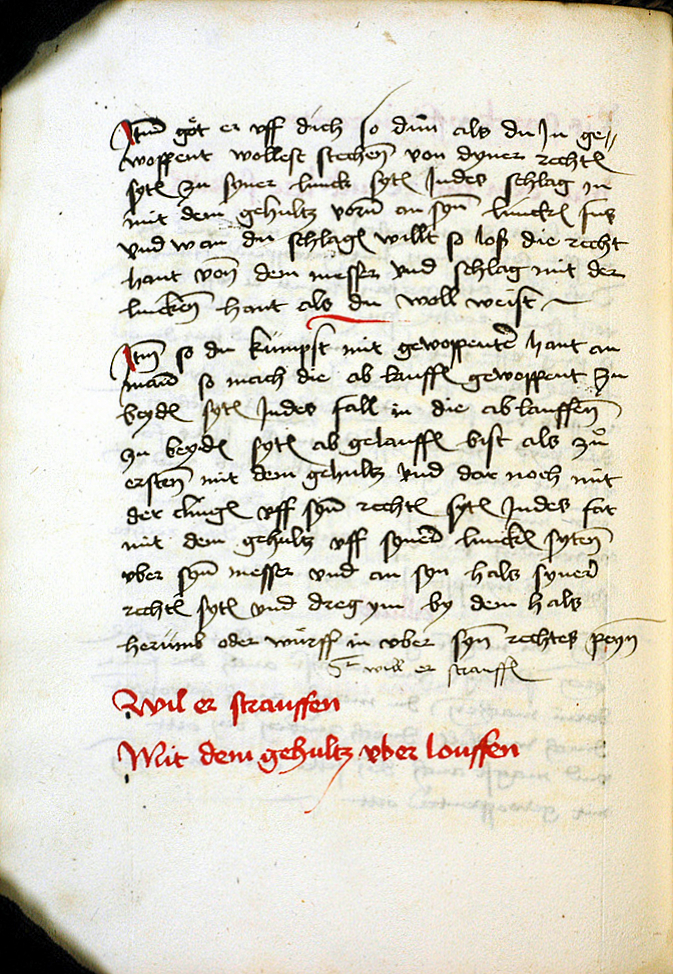 Itm göt er vff dich so důn als du Jn ge„
woppent wollest stechen von dyner rechtē
sytē zu syner linck sytē Jndes schlag in
mit dem gehültz vorn an syn linckē fus
vnd wan du schlagē willt so loß die recht
hant von dem messer vnd schlag mit der
lincken hant als du woll weist
Itm so du kümpst mit gewoppenter hant an
man so mach die ab lauffē gewoppent zu
beydē sytē Jndes fall in die ab lauffen
zu beydē sytē ab gelauffē bist als zů
ersten mit dem gehültz vnd dar noch mit
der clingē vff syn rechtē sytē Jndes far
mit dem gehültz vff syner linckē syten
vber syn messer vnd an syn hals syner
rechtē sytē vnd dreg ym by dem hals
herümb oder würff in vber syn rechtes peyn
will er strauffē
Wil er strauffen
Mit dem gehultz vber louffen